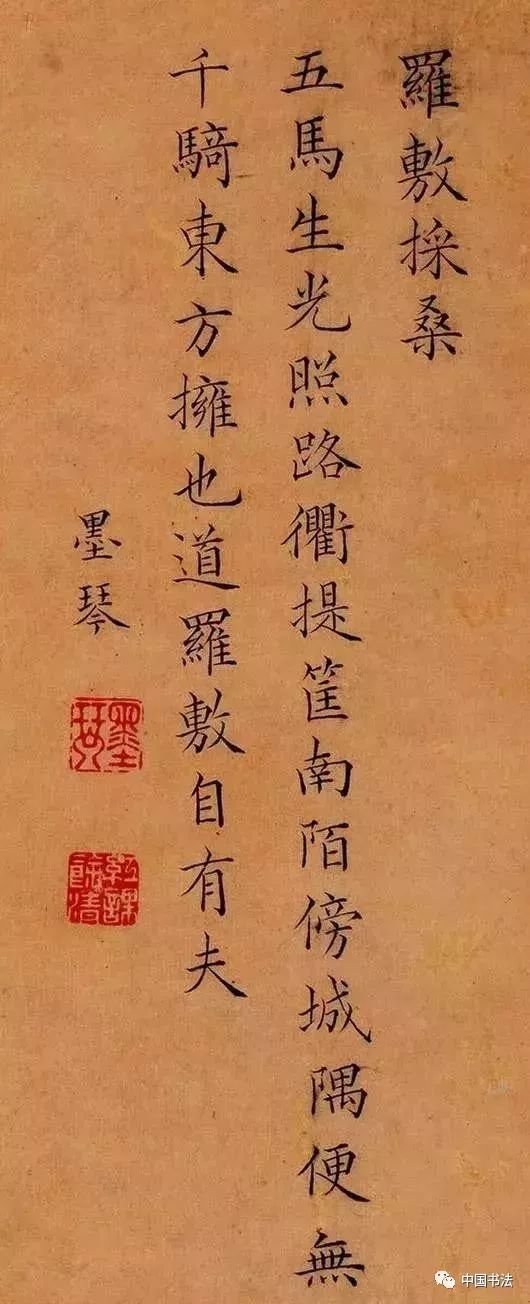 羅敷採桑
五馬生光照路衢提筐南陌傍城隅便無
千騎東方擁也道羅敷自有夫
墨琴
墨琴
中国书法